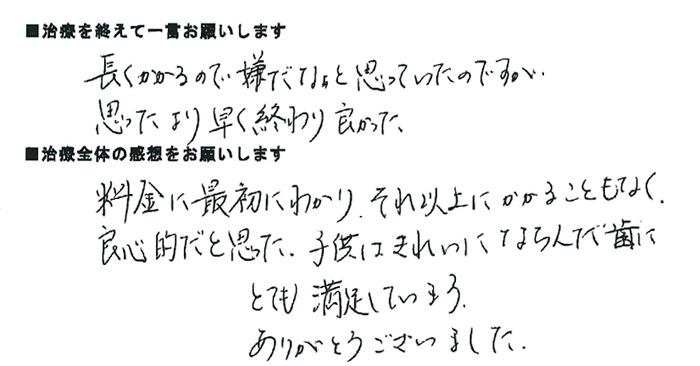 ■治療を終えて一言お願いします
長くかかるので嫌だなぁと思っていたのですが、
思ったより早く終わり良かった、
■治療全体の感想をお願いします
料金に最初にわかり、それ以上にかかることもなく、
良心的だと思った、子供はきれいにならんだ歯に
とても満足していまう、
ありがとうございました、